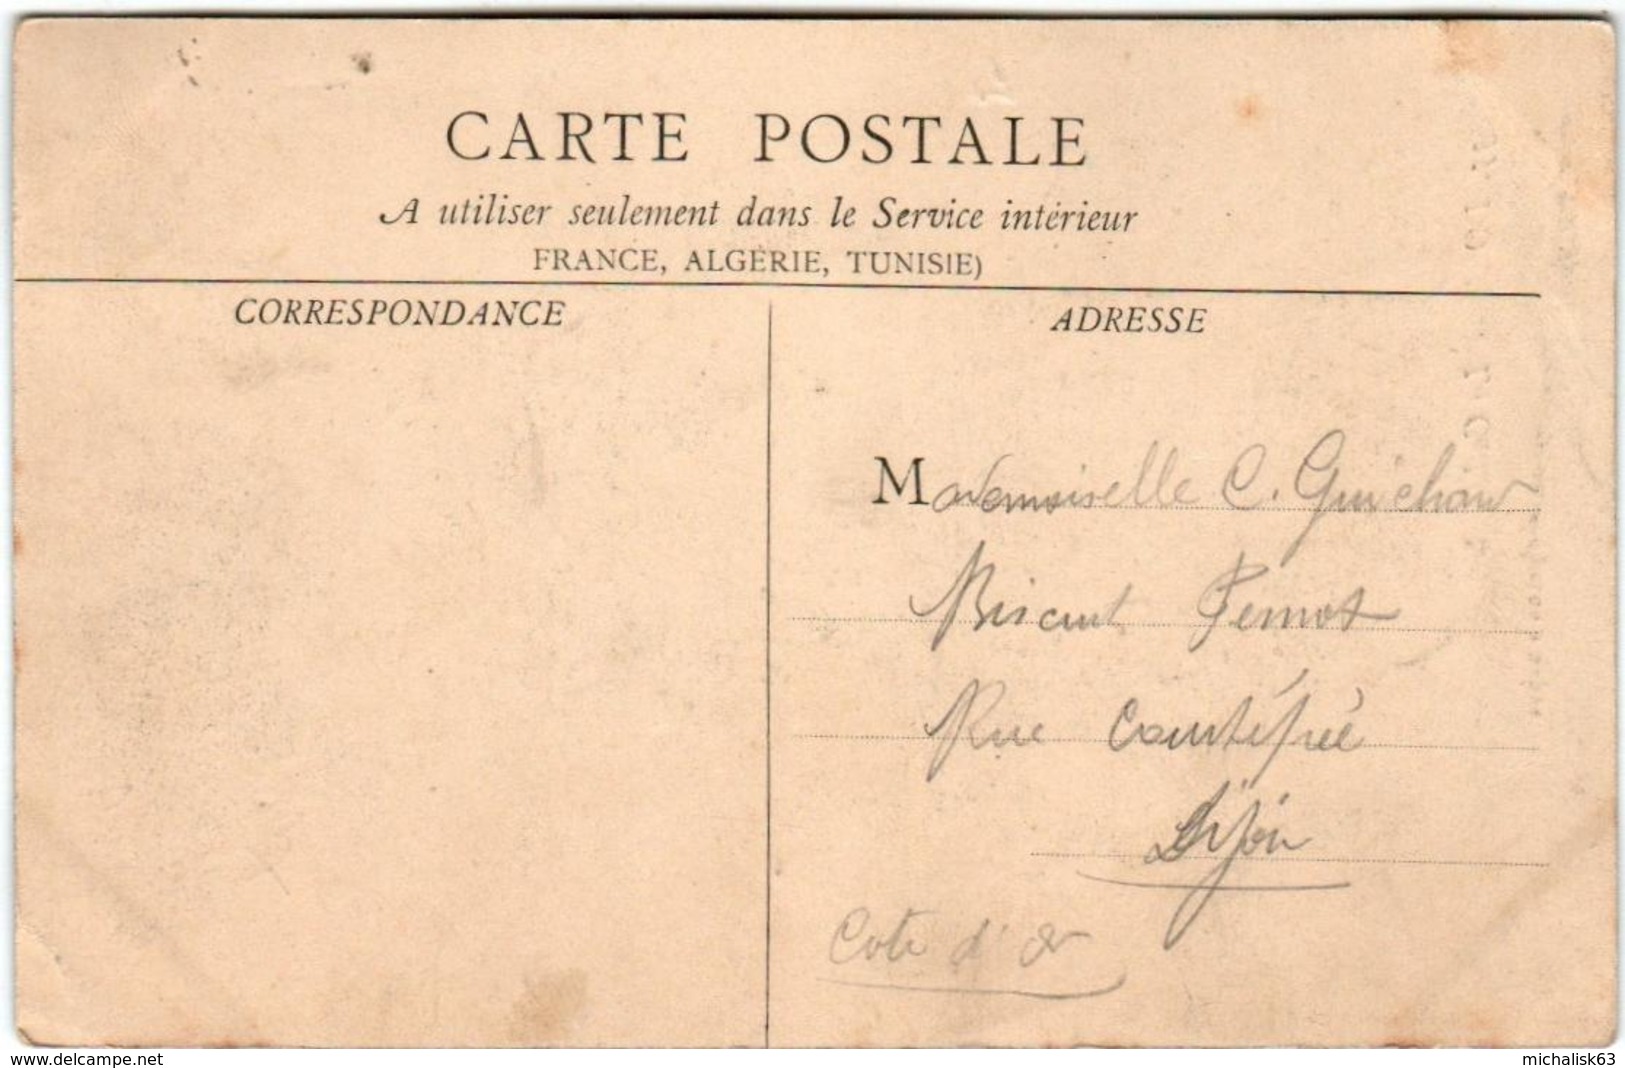 CARTE POSTALE
A utiliser seulement dans le Service intérieur
FRANCE, ALGÉRIE, TUNISIE)
CORRESPONDANCE
ADRESSE
Mademoiselle C. Guichard
Biscuit Pernot
Rue Courtépée
Dijon
Cote d'or
www.delcampe.net
michalisk63